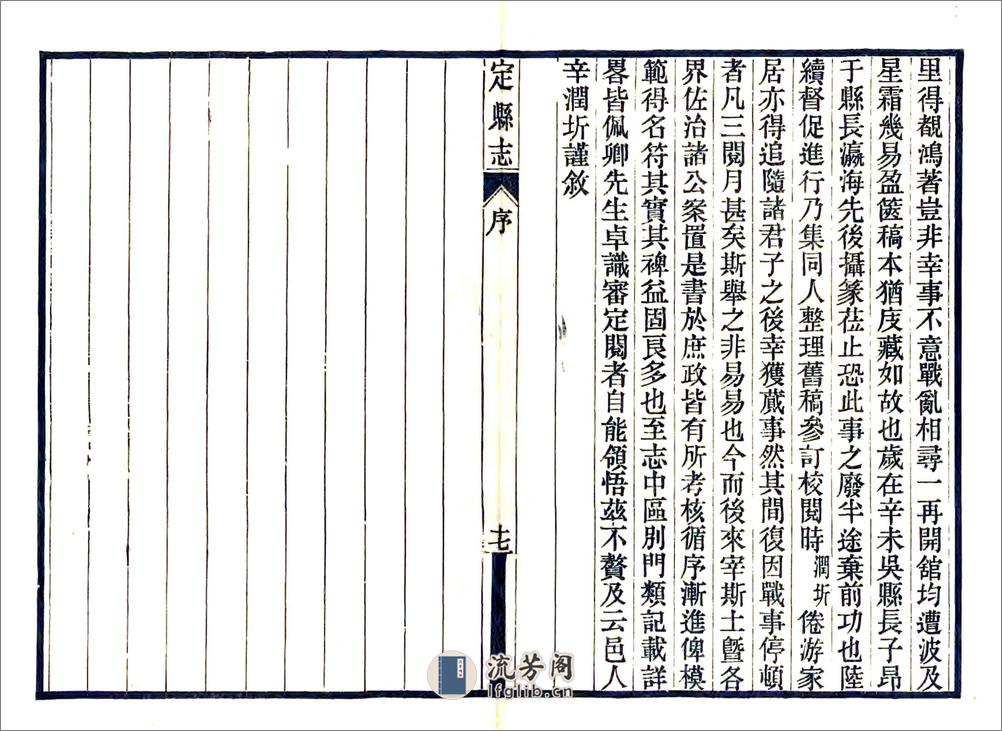 里得覩鴻著豈非幸事不意戰亂相尋一再開舘均遭波及
星霜幾易盈篋稿本猶庋藏如故也歲在辛未吳縣長子昂
于縣長瀛海先後攝篆莅止恐此事之廢半途棄前功也陸
續督促進行乃集同人整理舊稿參訂校閱時潤圻倦游家
居亦得追隨諸君子之後幸獲蕆事然其間復因戰事停頓
者凡三閱月甚矣斯舉之非易易也今而後來宰斯土曁各
界佐治諸公案置是書於庶政皆有所考核循序漸進俾模
範得名符其實其裨益固良多也至志中區別門類記載詳
畧皆佩卿先生卓識審定閱者自能領悟茲不贅及云邑人
辛潤圻謹敘
定縣志
序
十七
流芳阁
lfglib.cn